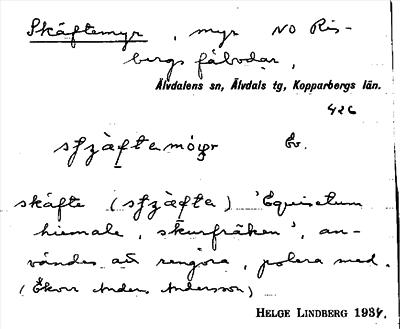 Skäftemyr, myr NO Ris-
bergs fäbodar,
Älvdalens sn, Älvdals tg, Kopparbergs län.
426
Ev.
skäfte ( ) 'Equisetum
hiemale, skurfräken', an-
vändes att rengöra, polera med.
(Ekorr Anders Andersson)
HELGE LINDBERG 1934.